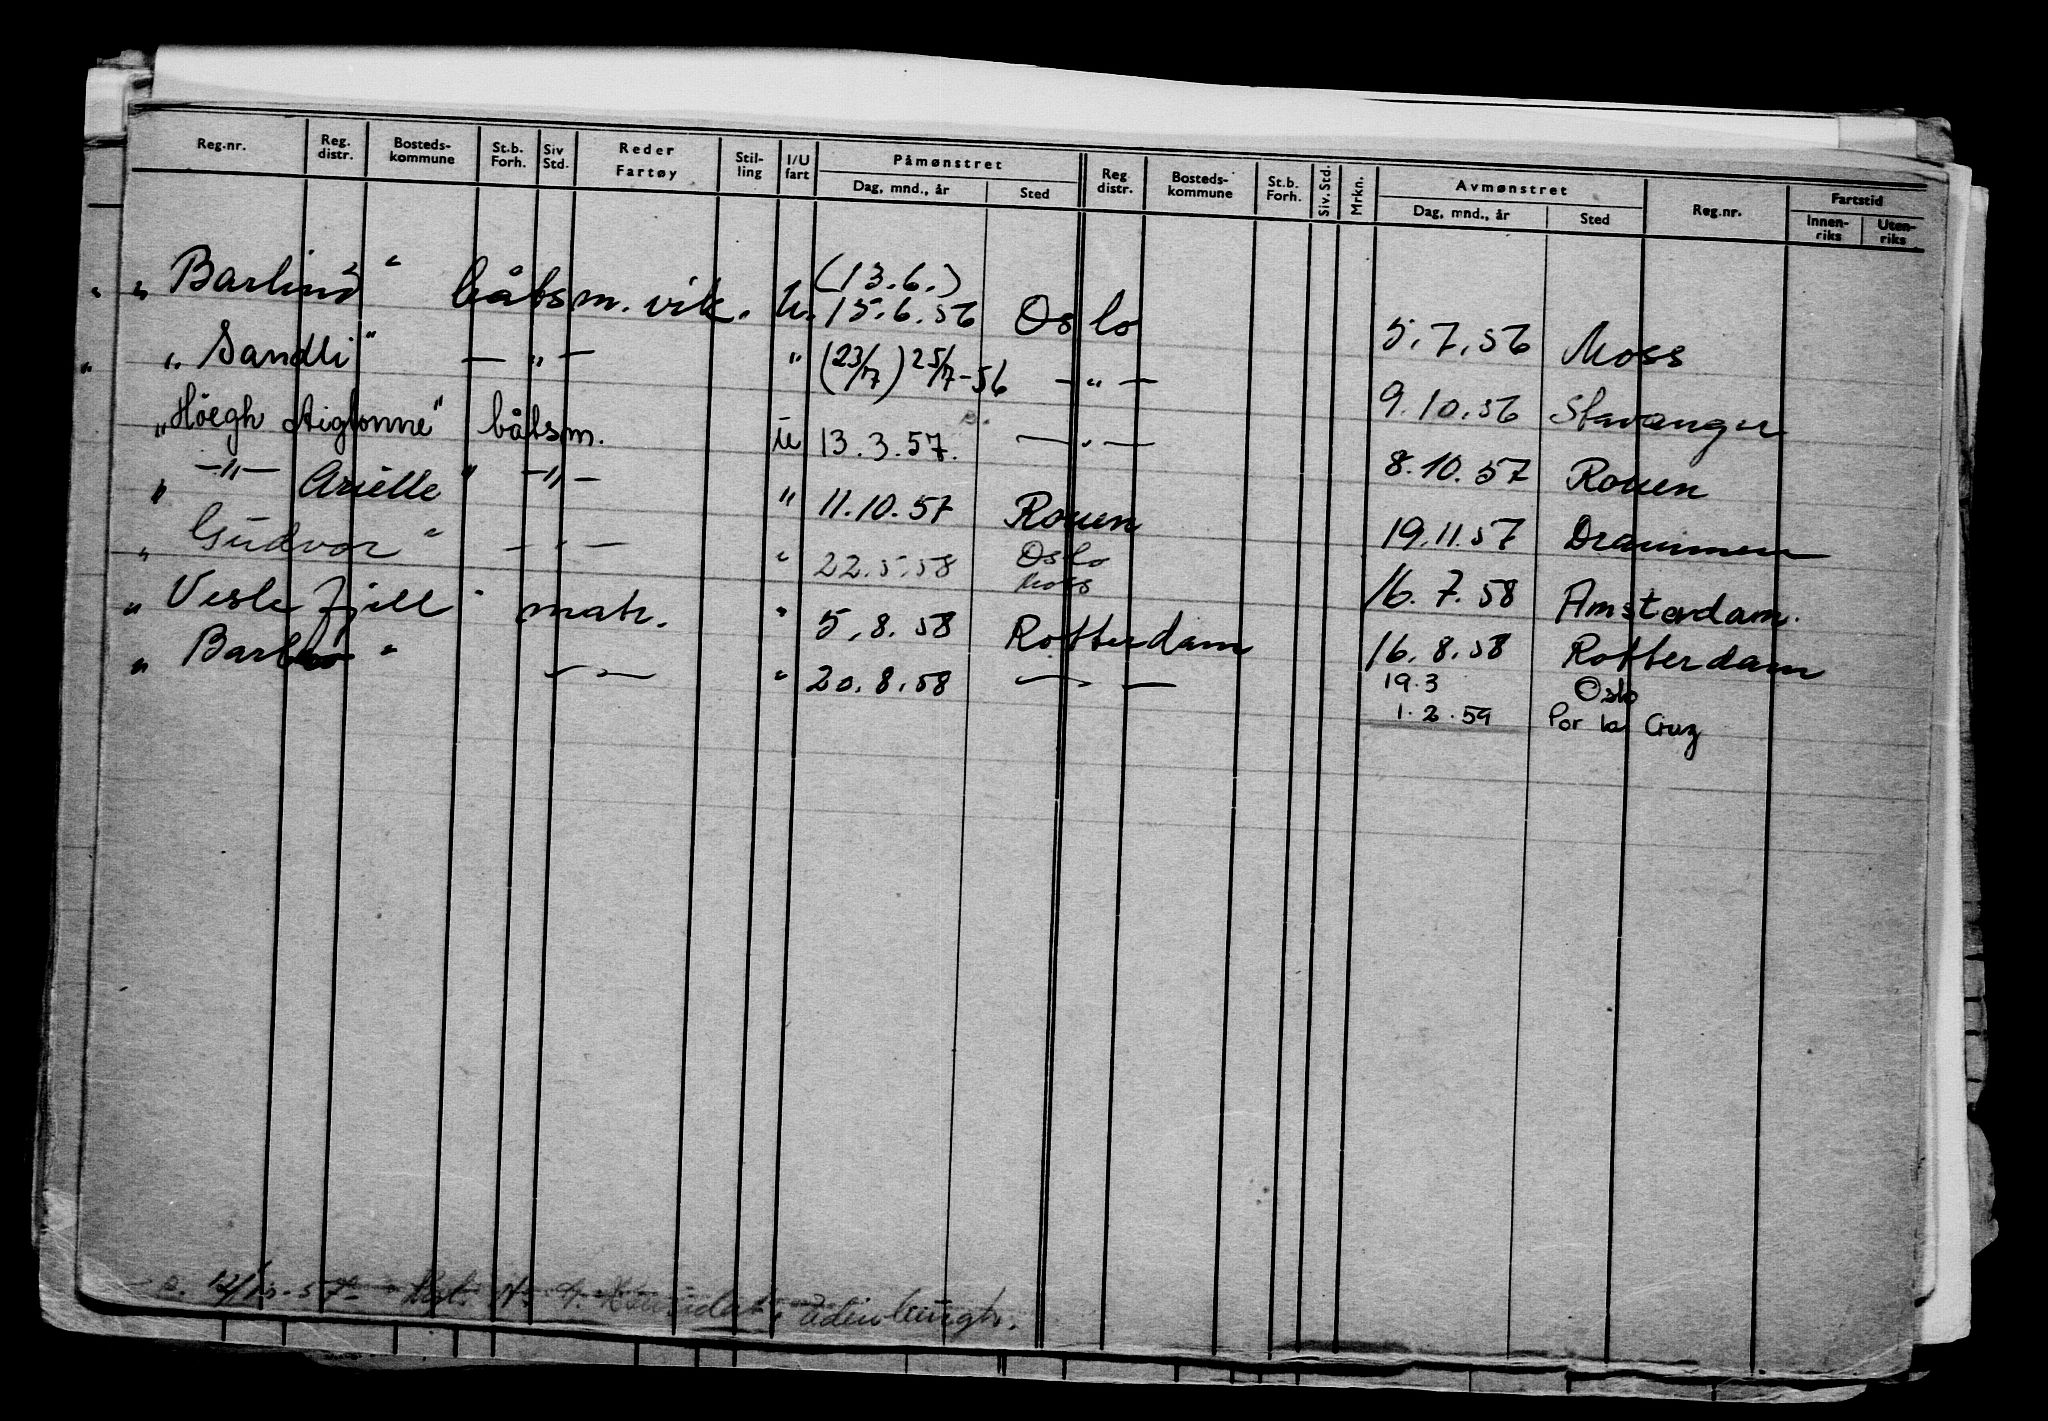 Reg.nr. Reg. distr. Bosteds-kommune St.b. Forh. Siv Std. Reder Fartøy Stil-ling I/U fart Påmønstret Dag, mnd., år Sted Reg distr. Bosteds-kommune St.b. Forh. Siv. Std. Mrkn. Avmønstret Dag, mnd., år Sted Reg.nr. Fartstid Innen-riks Uten-riks
(13.6.)
" Barlind " båtsm. vik. U. 15.6.56 Oslo 5.7.56 Moss
" Sandli " — " — " (23/7) 25/7-56 — " — 9.10.56 Stavanger
" Höegh Aiglonne " båtsm. u 13.3.57. — " — 8.10.57 Rouen
" —"— Arielle " —"— " 11.10.57 Rouen 19.11.57 Drammen
" Gudvor " — " — " 22.5.58 Oslo Moss 16.7.58 Amsterdam.
" Veslefjell " matr. " 5.8.58 Rotterdam 16.8.58 Rotterdam
" Barbro " — " — " 20.8.58 — " — 19.3 Oslo
1.2.59 Por la Cruz
12/12-57